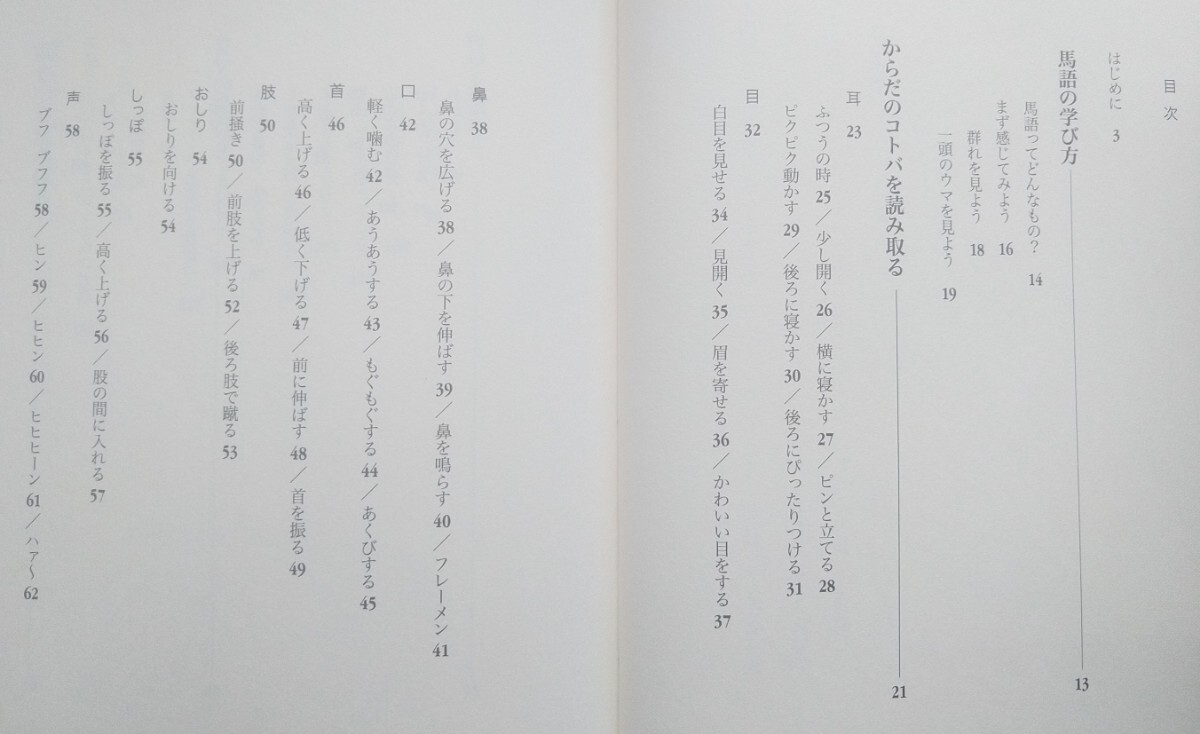 目次
はじめに 3
馬語の学び方 13
馬語ってどんなもの? 14
まず感じてみよう 16
群れを見よう 18
一頭のウマを見よう 19
からだのコトバを読み取る 21
耳 23
ふつうの時 25／少し開く 26／横に寝かす 27／ピンと立てる 28
ピクピク動かす 29／後ろに寝かす 30／後ろにぴったりつける 31
目 32
白目を見せる 34／見開く 35／眉を寄せる 36／かわいい目をする 37
鼻 38
鼻の穴を広げる 38／鼻の下を伸ばす 39／鼻を鳴らす 40／フレーメン 41
口 42
軽く噛む 42／あうあうする 43／もぐもぐする 44／あくびする 45
首 46
高く上げる 46／低く下げる 47／前に伸ばす 48／首を振る 49
肢 50
前掻き 50／前肢を上げる 52／後ろ肢で蹴る 53
おしり 54
おしりを向ける 54
しっぽ 55
しっぽを振る 55／高く上げる 56／股の間に入れる 57
声 58
ブフ ブフフ 58／ヒン 59／ヒヒン 60／ヒヒヒーン 61／ハァ〜 62